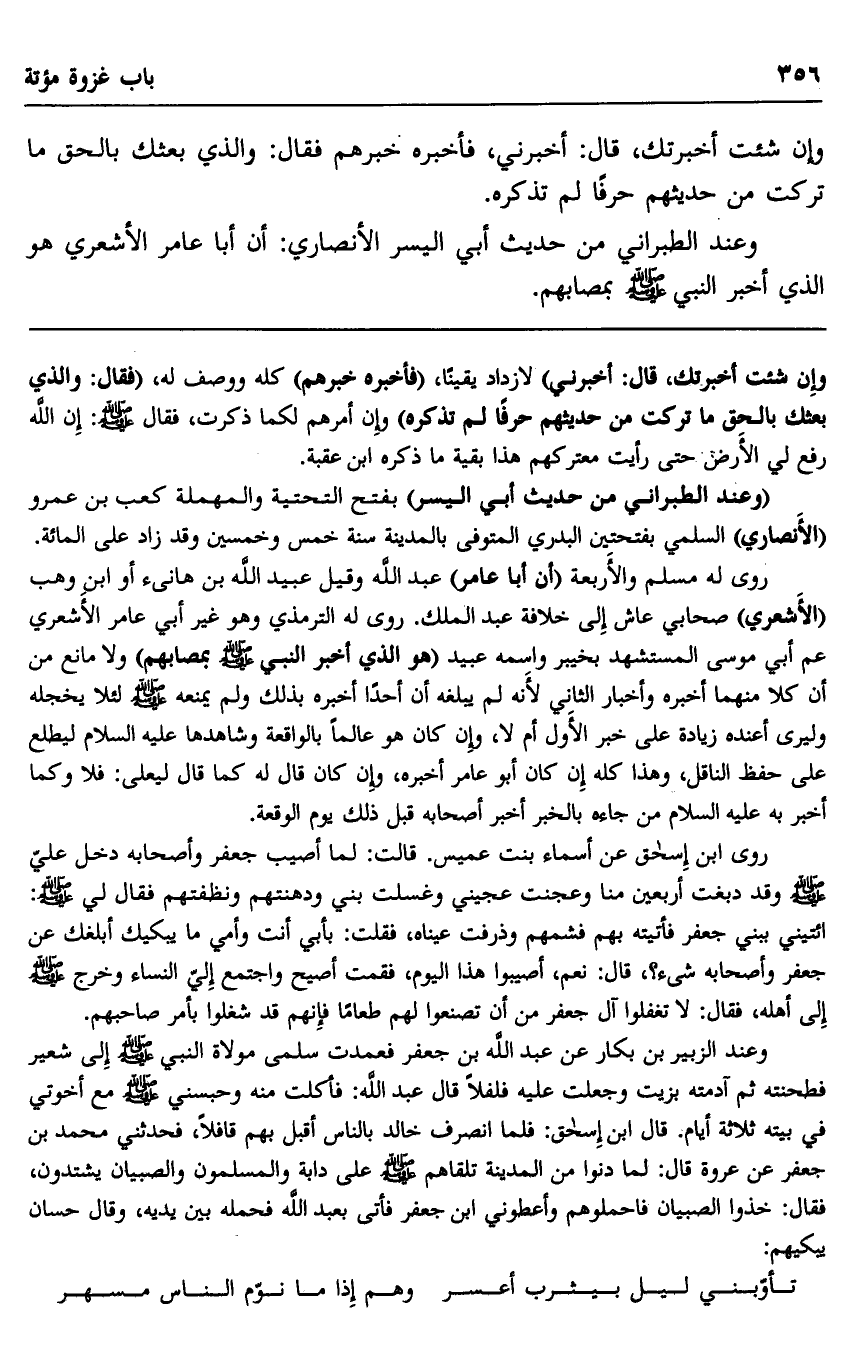 ٣٥٦ باب غزوة مؤتة
وإن شئت أخبرتك، قال: أخبرني، فأخبره خبرهم فقال: والذي بعثك بالحق ما
تركت من حديثهم حرفًا لم تذكره.
وعند الطبراني من حديث أبي اليسر الأنصاري: أن أبا عامر الأشعري هو
الذي أخبر النبي ﷺ بمصابهم.
وإن شئت أخبرتك، قال: أخبرني) لازداد يقينًا، (فأخبره خبرهم) كله ووصف له، (فقال: والذي
بعثك بالحق ما تركت من حديثهم حرفًا لم تذكره) وإن أمرهم لكما ذكرت، فقال ﷺ: إن اللَّه
رفع لي الأرض حتى رأيت معتركهم هذا بقية ما ذكره ابن عقبة.
(وعند الطبراني من حديث أبي اليسر) بفتح التحتية والمهملة كعب بن عمرو
(الأنصاري) السلمي بفتحتين البدري المتوفى بالمدينة سنة خمس وخمسين وقد زاد على المائة.
روى له مسلم والأربعة (أن أبا عامر) عبد اللَّه وقيل عبيد اللَّه بن هانىء أو ابن وهب
(الأشعري) صحابي عاش إلى خلافة عبد الملك. روى له الترمذي وهو غير أبي عامر الأشعري
عم أبي موسى المستشهد بخيبر واسمه عبيد (هو الذي أخبر النبي ﷺ بمصابهم) ولا مانع من
أن كلا منهما أخبره وأخبار الثاني لأنه لم يبلغه أن أحدًا أخبره بذلك ولم يمنعه ﷺ لئلا يخجله
وليرى أعنده زيادة على خبر الأول أم لا، وإن كان هو عالماً بالواقعة وشاهدها عليه السلام ليطلع
على حفظ الناقل، وهذا كله إن كان أبو عامر أخبره، وإن كان قال له كما قال ليعلى: فلا وكما
أخبر به عليه السلام من جاءه بالخبر أخبر أصحابه قبل ذلك يوم الوقعة.
روى ابن إسحٰق عن أسماء بنت عميس. قالت: لما أصيب جعفر وأصحابه دخل عليّ
ﷺ وقد دبغت أربعين منا وعجنت عجيني وغسلت بني ودهنتهم ونظفتهم فقال لي ﷺ:
ائتيني ببني جعفر فأتيته بهم فشمهم وذرفت عيناه، فقلت: بأبي أنت وأمي ما يبكيك أبلغك عن
جعفر وأصحابه شىء؟، قال: نعم، أصيبوا هذا اليوم، فقمت أصيح واجتمع إليّ النساء وخرج ﷺ
إلى أهله، فقال: لا تغفلوا آل جعفر من أن تصنعوا لهم طعامًا فإنهم قد شغلوا بأمر صاحبهم.
وعند الزبير بن بكار عن عبد اللَّه بن جعفر فعمدت سلمى مولاة النبي ﷺ إلى شعير
فطحنته ثم آدمته بزيت وجعلت عليه فلفلاً قال عبد اللَّه: فأكلت منه وحبسني ﷺ مع أخوتي
في بيته ثلاثة أيام. قال ابن إسحٰق: فلما انصرف خالد بالناس أقبل بهم قافلاً، فحدثني محمد بن
جعفر عن عروة قال: لما دنوا من المدينة تلقاهم ﷺ على دابة والمسلمون والصبيان يشتدون،
فقال: خذوا الصبيان فاحملوهم وأعطوني ابن جعفر فأتى بعبد اللَّه فحمله بين يديه، وقال حسان
يبكيهم:
تـأوّبـنـي لـيـل بـيـثـرب أعـسـر وهـم إذا مـا نـوّم الـنـاس مـسـهـر